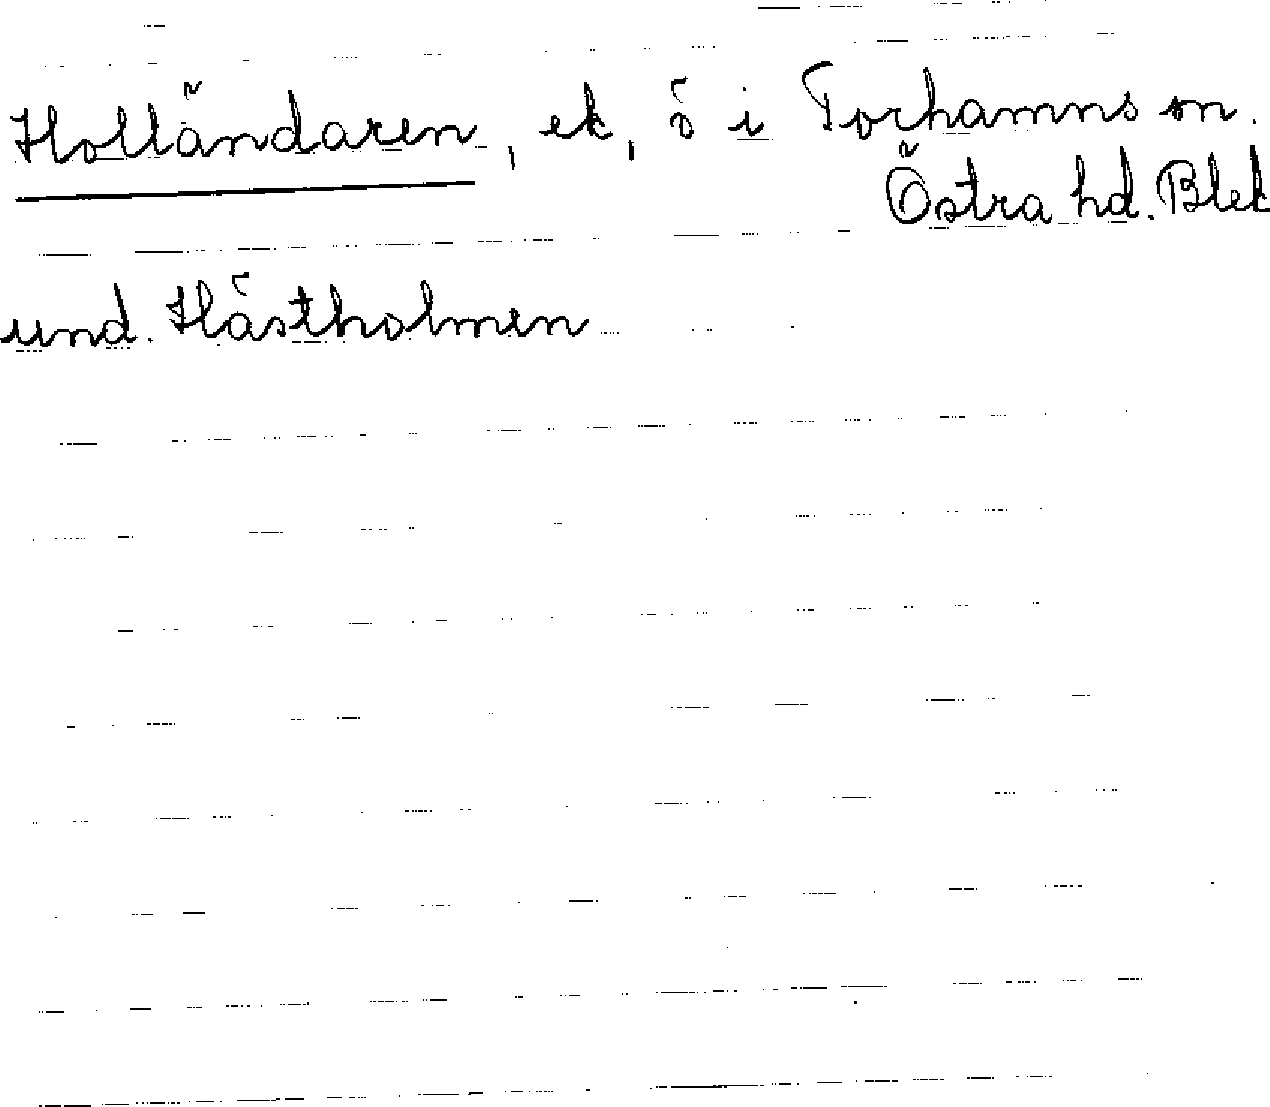 Holländaren, ek, ö i Torhamns sn.
Östra hd. Blek
und. Hästholmen